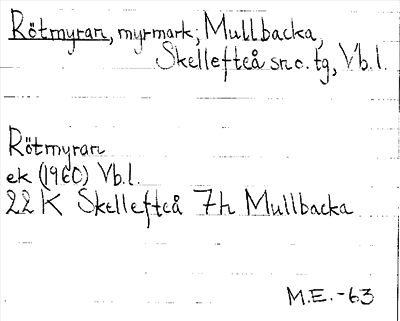 Rötmyran, myrmark, Mullbacka,
Skellefteå sn o. tg, Vb.l.
Rötmyran
ek (1960) Vb.l.
22 K Skellefteå 7h Mullbacka
M.E.-63